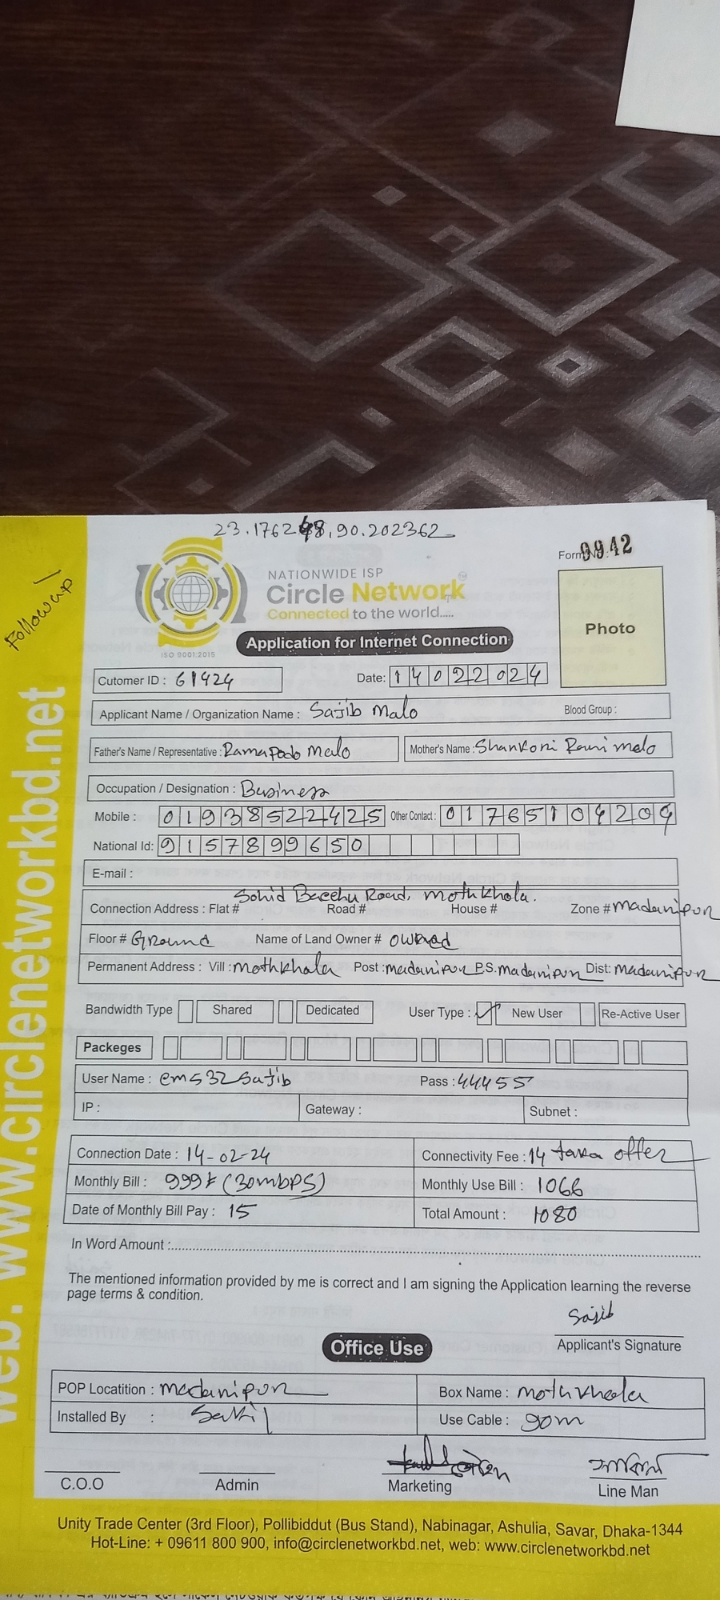 23.176248,90.202362
Followup
Form 9942
NATIONWIDE ISP
Circle Network
Connected to the world.....
ISO 9001:2015
Application for Internet Connection
Photo
Cutomer ID : 61424
Date: 14022024
Applicant Name / Organization Name : Sajib Malo
Blood Group :
Father's Name / Representative : Ramapodo Malo
Mother's Name : Shankori Rani malo
Occupation / Designation : Business
Mobile : 01938522425 Other Contact : 01765104204
National Id: 9157899650
E-mail :
Sohid Bacchu Road, mothkhola.
Connection Address : Flat # Road # House # Zone # madaripur
Floor # Ground Name of Land Owner # owned
Permanent Address : Vill : mothkhala Post : madaripur P.S. madaripur Dist: madaripur
Bandwidth Type Shared Dedicated User Type : New User Re-Active User
Packeges
User Name : ems32sajib Pass : 44455
IP : Gateway : Subnet :
Connection Date : 14-02-24 Connectivity Fee : 14 taka offer
Monthly Bill : 999৳ (30mbps) Monthly Use Bill : 1066
Date of Monthly Bill Pay : 15 Total Amount : 1080
In Word Amount :
The mentioned information provided by me is correct and I am signing the Application learning the reverse
page terms & condition.
Sajib
Applicant's Signature
Office Use
POP Locatition : madaripur Box Name : mothkhola
Installed By : Sakil Use Cable : 90m
C.O.O Admin Marketing Line Man
Unity Trade Center (3rd Floor), Pollibiddut (Bus Stand), Nabinagar, Ashulia, Savar, Dhaka-1344
Hot-Line: + 09611 800 900, info@circlenetworkbd.net, web: www.circlenetworkbd.net
web: www.circlenetworkbd.net